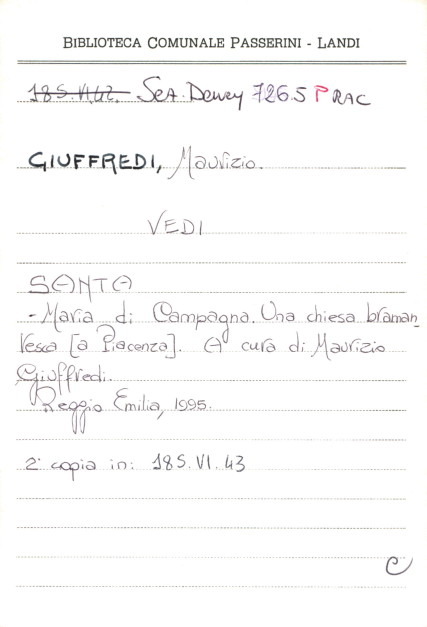 BIBLIOTECA COMUNALE PASSERINI - LANDI
18S.VI.42. Sez. Dewey 726.5 P RAC
GIUFFREDI, Maurizio.
VEDI
SANTA
- Maria di Campagna. Una chiesa braman-
tesca [a Piacenza]. A cura di Maurizio
Giuffredi.
Reggio Emilia, 1995.
2ª copia in: 18S.VI.43
C